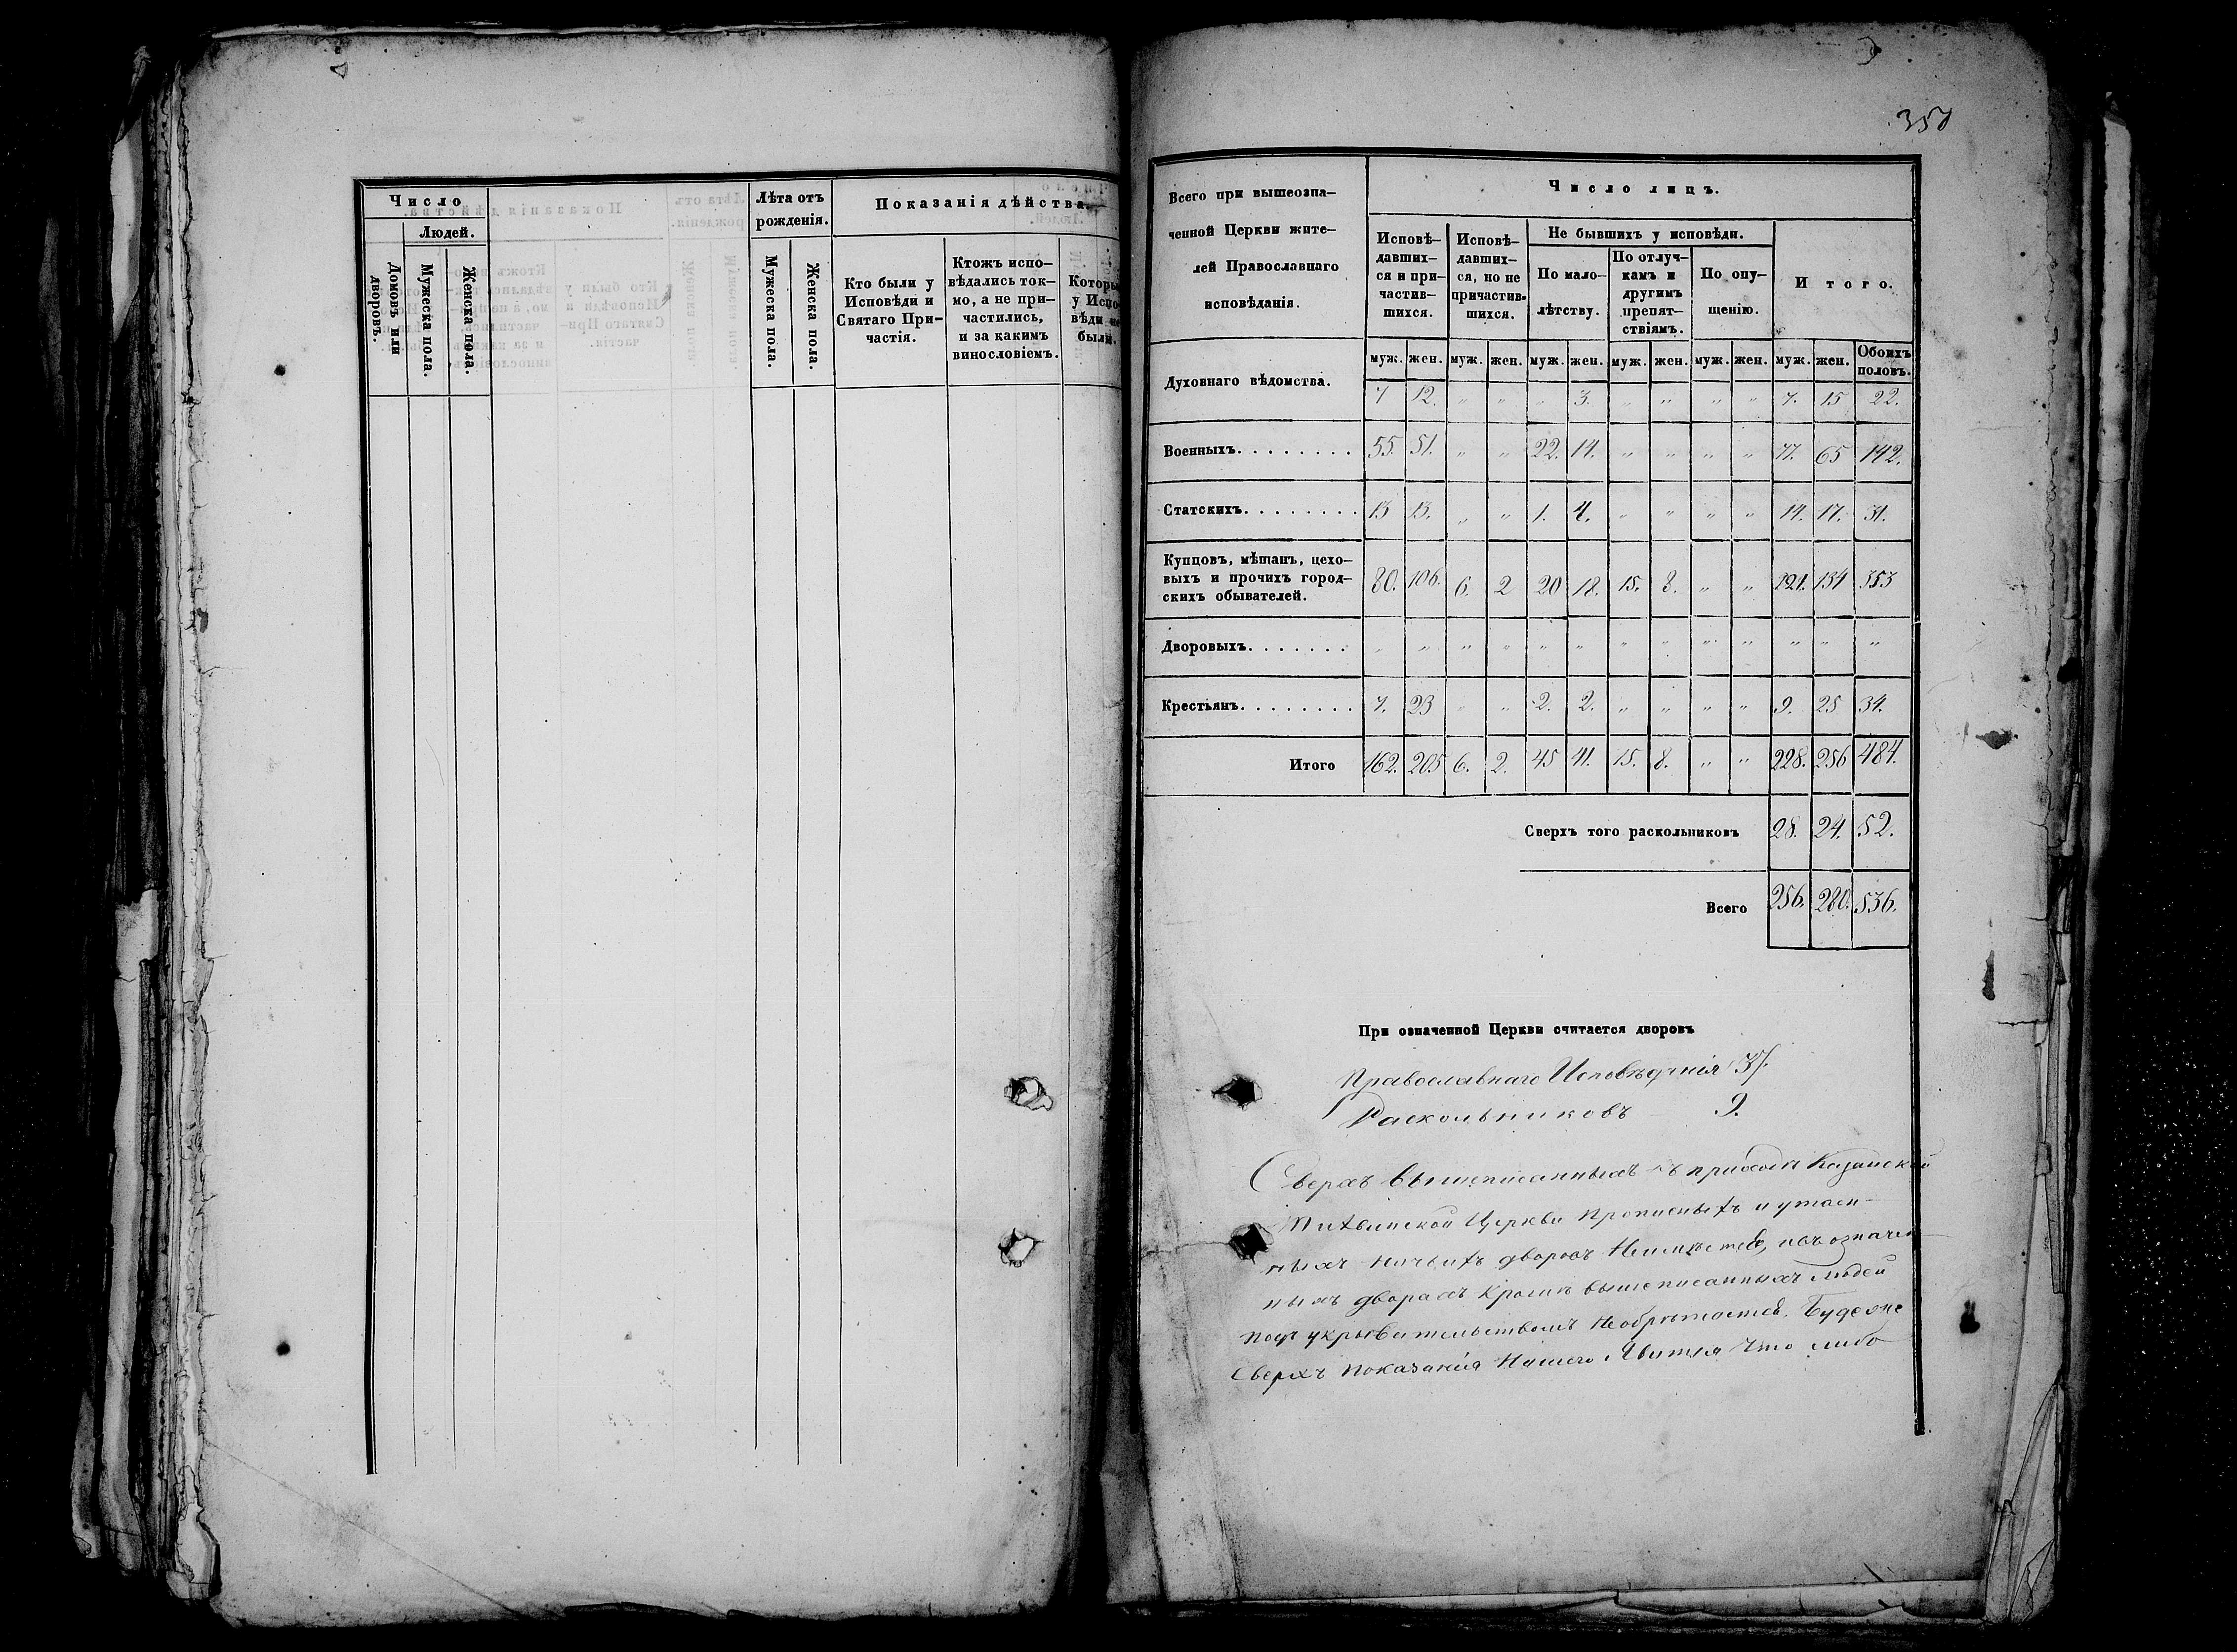 Число
Людей.
Домовъ или дворовъ.
Мужеска пола.
Женска пола.
Лѣта отъ рожденія.
Мужеска пола.
Женска пола.
Показанія дѣйства.
Кто были у
Исповѣди и
Святаго При-
частія.
Ктожъ испо-
вѣдались ток-
мо, а не при-
частились,
и за какимъ
винословіемъ.
Которы
у Испо-
вѣди не
были.
Всего при вышеозна-
ченной Церкви жите-
лей Православнаго
исповѣданія.
Число лицъ.
Исповѣ-
давших-
ся и при-
частив-
шихся.
Исповѣ-
давших-
ся, но не
причастив-
шихся.
Не бывшихъ у исповѣди.
По мало-
лѣтству.
По отлуч-
камъ и
другимъ
препят-
ствіямъ.
По опу-
щенію.
Итого.
муж. жен. муж. жен. муж. жен. муж. жен. муж. жен. муж. жен. Обоихъ половъ.
Духовнаго вѣдомства. 7 12. " " " 3. " " " " 7. 15 22.
Военныхъ. . . . . . . . 55. 51. " " 22. 14. " " " " 77. 65 142.
Статскихъ. . . . . . . . 13 13. " " 1. 4. " " " " 14. 17. 31.
Купцовъ, мѣщанъ, цехо-
выхъ и прочихъ город-
скихъ обывателей. 80. 106. 6. 2 20 18. 15. 8. " " 121. 134 353
Дворовыхъ. . . . . . . " " " " " " " " " " " " "
Крестьянъ. . . . . . . . 7. 23 " " 2. 2. " " " " 9. 25 34.
Итого 162. 205 6. 2. 45 41. 15. 8. " " 228. 256 484.
Сверхъ того раскольниковъ 28. 24. 52.
Всего 256. 280. 536.
При означенной Церкви считается дворовъ
Православнаго Исповѣданія 37.
Раскольниковъ 9.
Сверхъ вышеписанныхъ въ приходѣ Казанской
Тихвинской Церкви прописныхъ и утаен-
ныхъ ничьихъ дворовъ Неимѣется, и въ означен-
ныхъ дворахъ Кромѣ вышеписанныхъ людей
подъ укрывательствомъ Необрѣтается. Буде же
Сверхъ показанія Нашего Явится Что либо